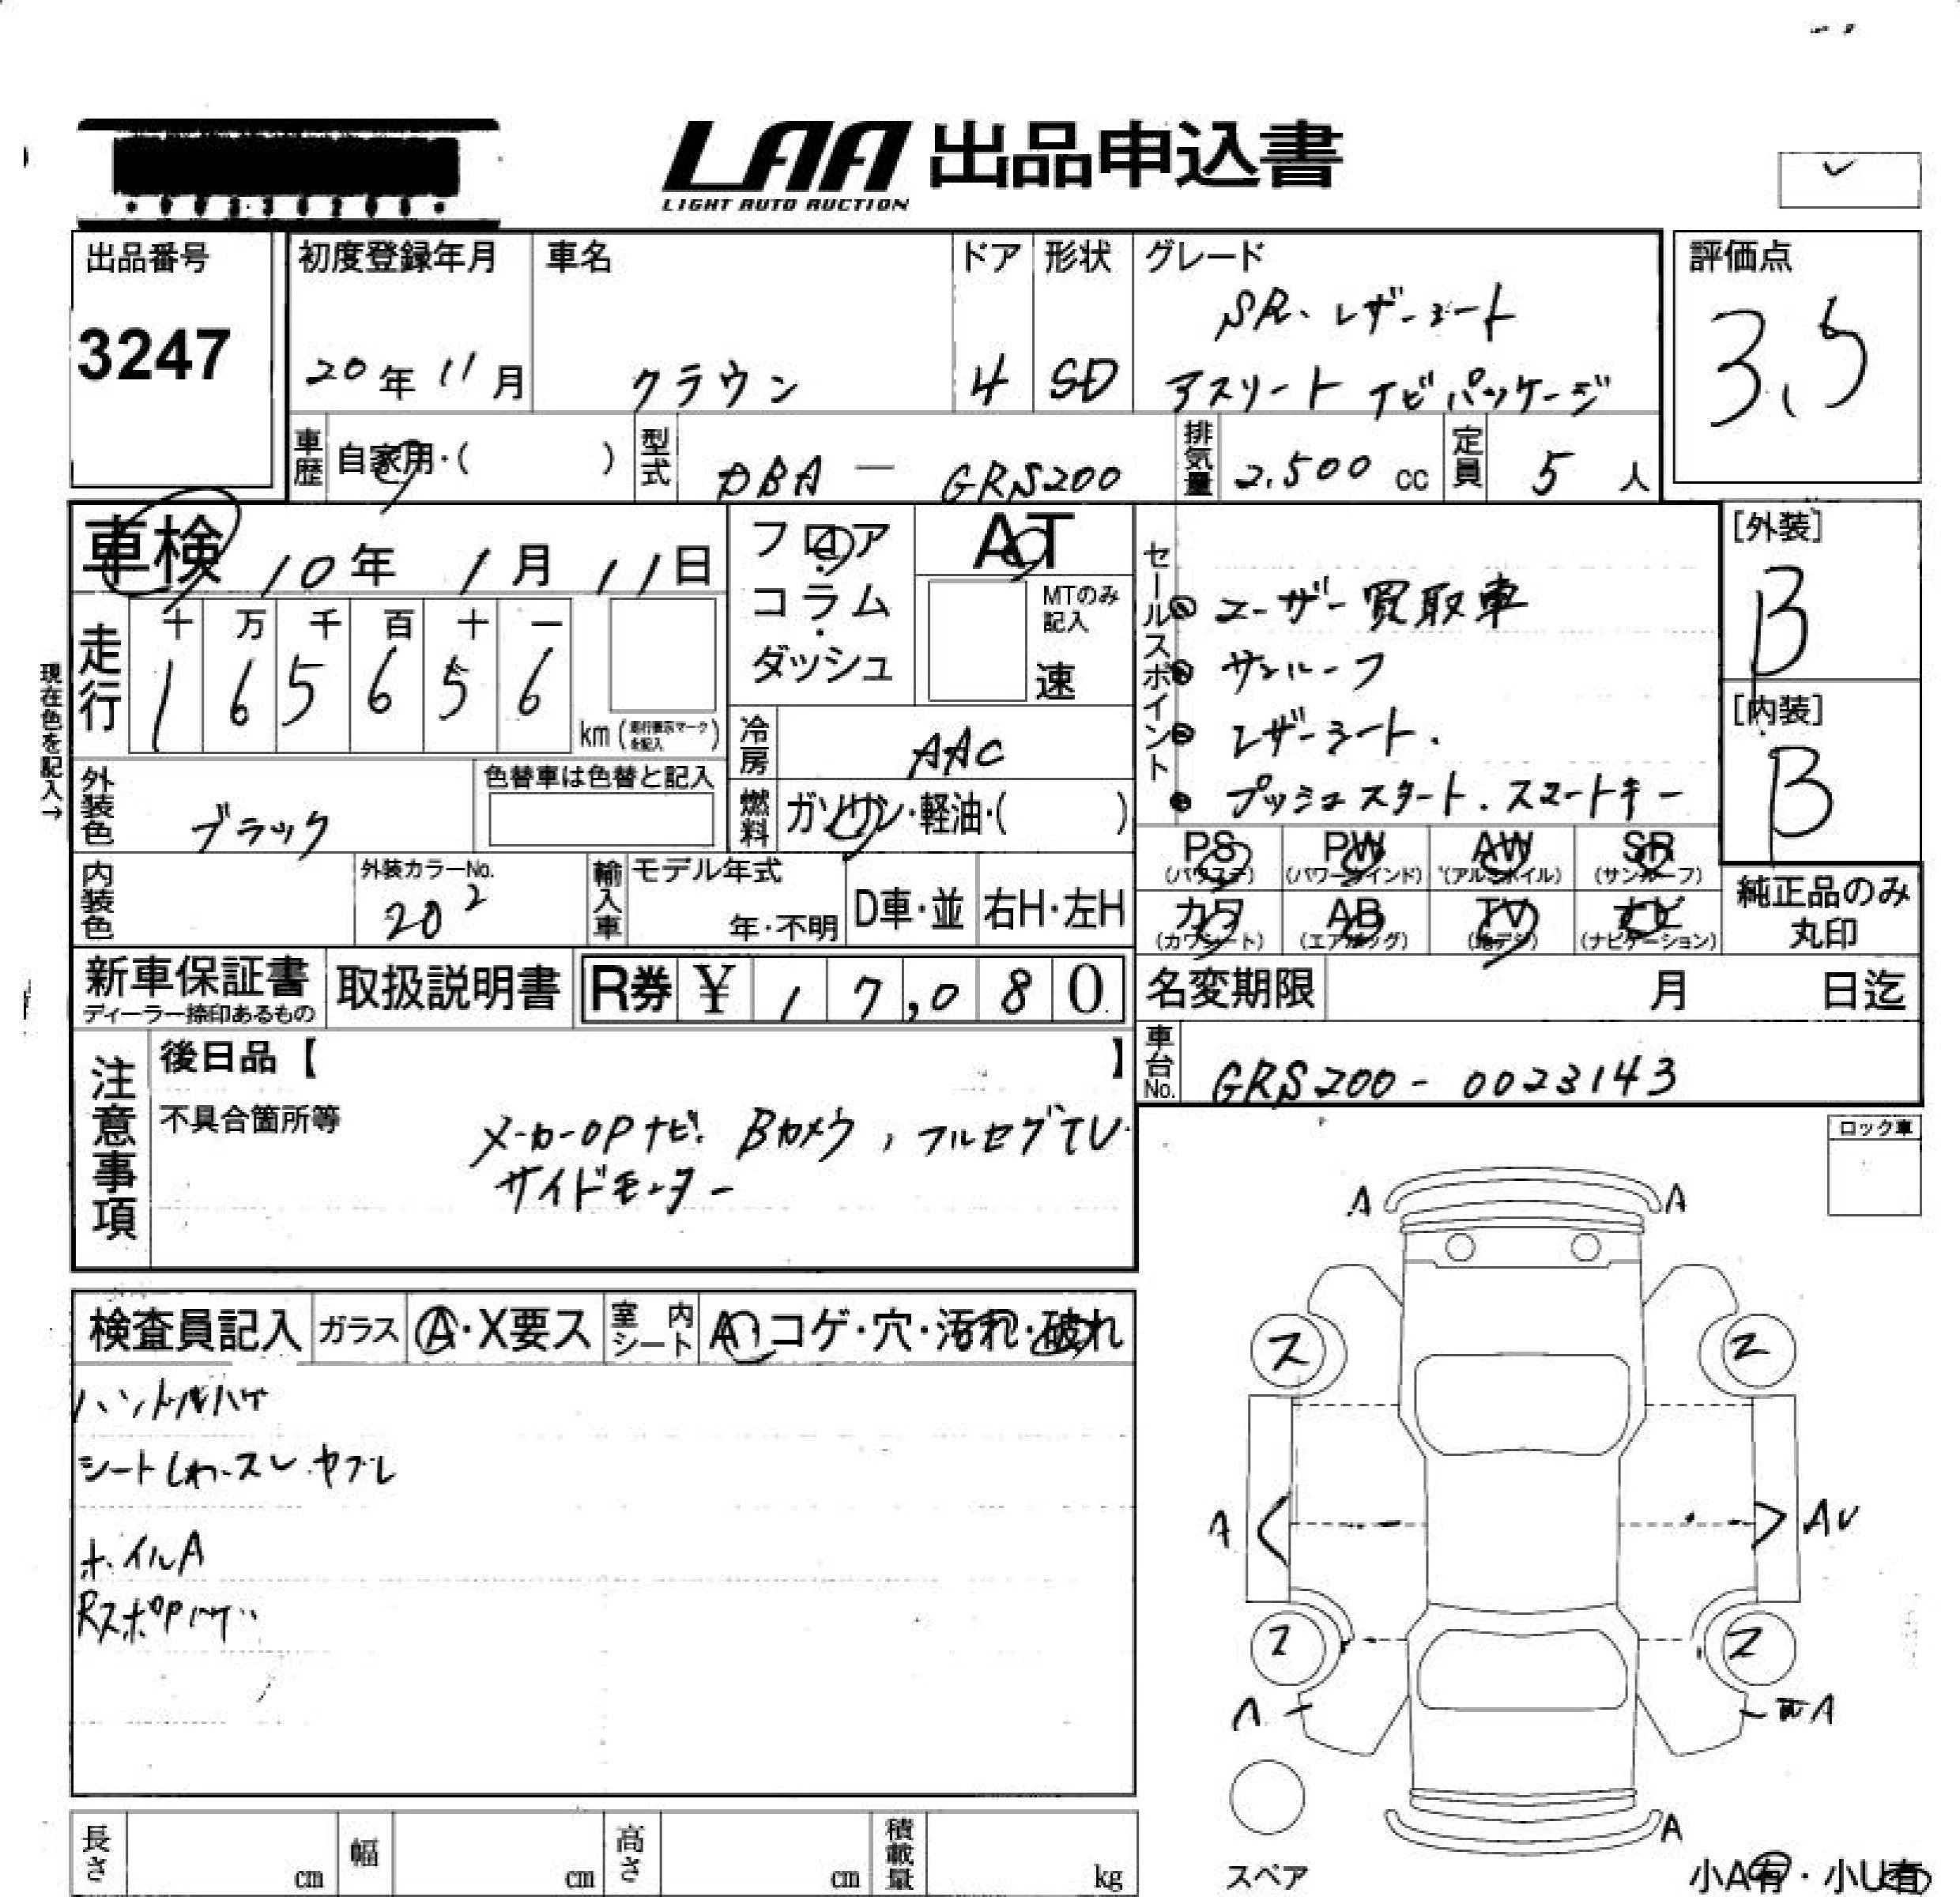 LAA 出品申込書
LIGHT AUTO AUCTION
出品番号 初度登録年月 車名 ドア 形状 グレード 評価点
SR、レザーシート
3247 20年 11月 クラウン 4 SD アスリート ナビパッケージ 3.5
車歴 自家用・( ) 型式 DBA — GRS200 排気量 2,500 cc 定員 5 人
車検 10年 1月 11日 フロア AT [外装]
コラム MTのみ記入 B
ダッシュ 速
セールスポイント
ユーザー買取車
サンルーフ
レザーシート.
プッシュスタート.スマートキー
[内装]
B
現在色を記入→
走行 十 万 千 百 十 一
1 6 5 6 5 6 km (走行表示マークを記入)
冷房 AAC
外装色 ブラック 色替車は色替と記入 燃料 ガソリン・軽油・( )
PS PW AW SR
(パワステ) (パワーウインド) (アルミホイル) (サンルーフ)
カワ AB TV ナビ
(カワシート) (エアバッグ) (地デジ) (ナビゲーション)
純正品のみ
丸印
内装色 外装カラーNo. 202 輸入車 モデル年式 年・不明 D車・並 右H・左H
新車保証書 取扱説明書 R券 ¥ 1 7,0 8 0 名変期限 月 日迄
ディーラー捺印あるもの
車台No. GRS200-0023143
注意事項 後日品【 】
不具合箇所等 メーカーOPナビ. Bカメラ, フルセグTV.
サイドモニター
ロック車
A A
検査員記入 ガラス A・X要ス 室内シート A・コゲ・穴・汚れ・破れ
ハンドルハゲ
シートしわ.スレ.ヤブレ
ホイルA
RスポOPハゲ
ス ス
A AU
ス ス
A A
A
スペア
小A有・小U有
長さ cm 幅 cm 高さ cm 積載量 kg